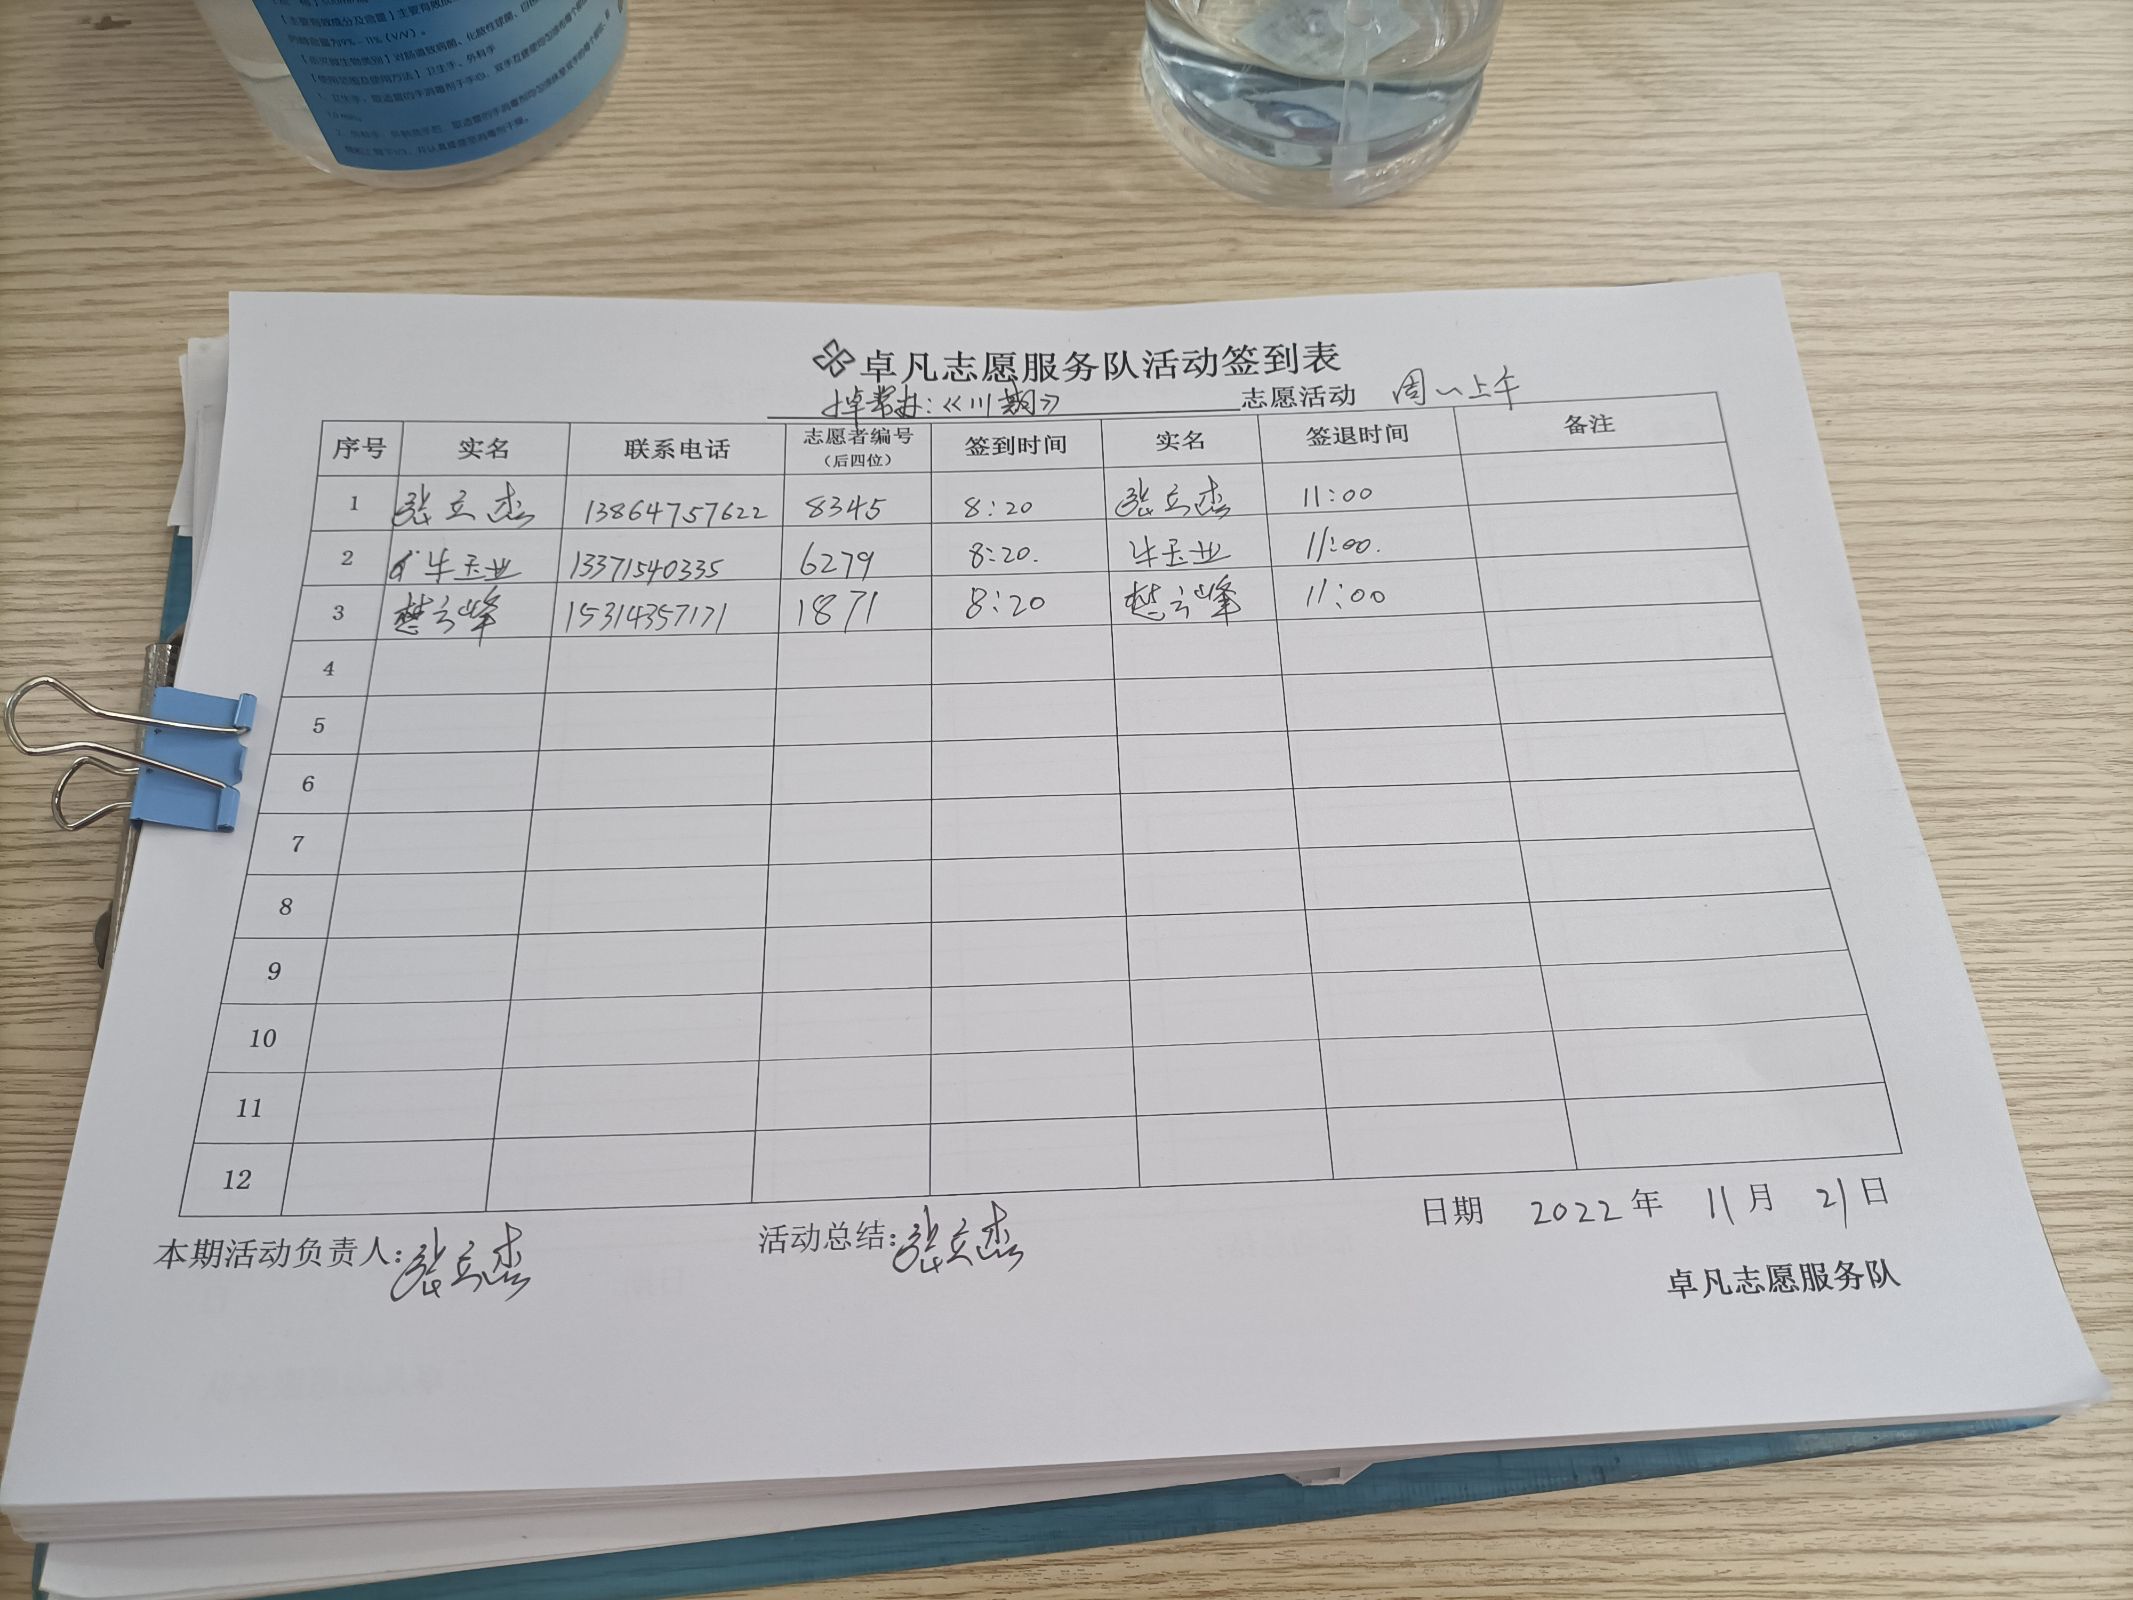 【使用范围及使用方法】卫生手、外科手
卓凡志愿服务队活动签到表
志愿活动 周一上午
序号 实名 联系电话 志愿者编号（后四位） 签到时间 实名 签退时间 备注
1 张立杰 13864757622 8345 8:20 张立杰 11:00
2 牛玉业 13371540335 6279 8:20. 牛玉业 11:00.
3 楚云峰 15314357171 1871 8:20 楚云峰 11:00
4
5
6
7
8
9
10
11
12
本期活动负责人:张立杰 活动总结:张立杰 日期 2022年 11月 21日
卓凡志愿服务队